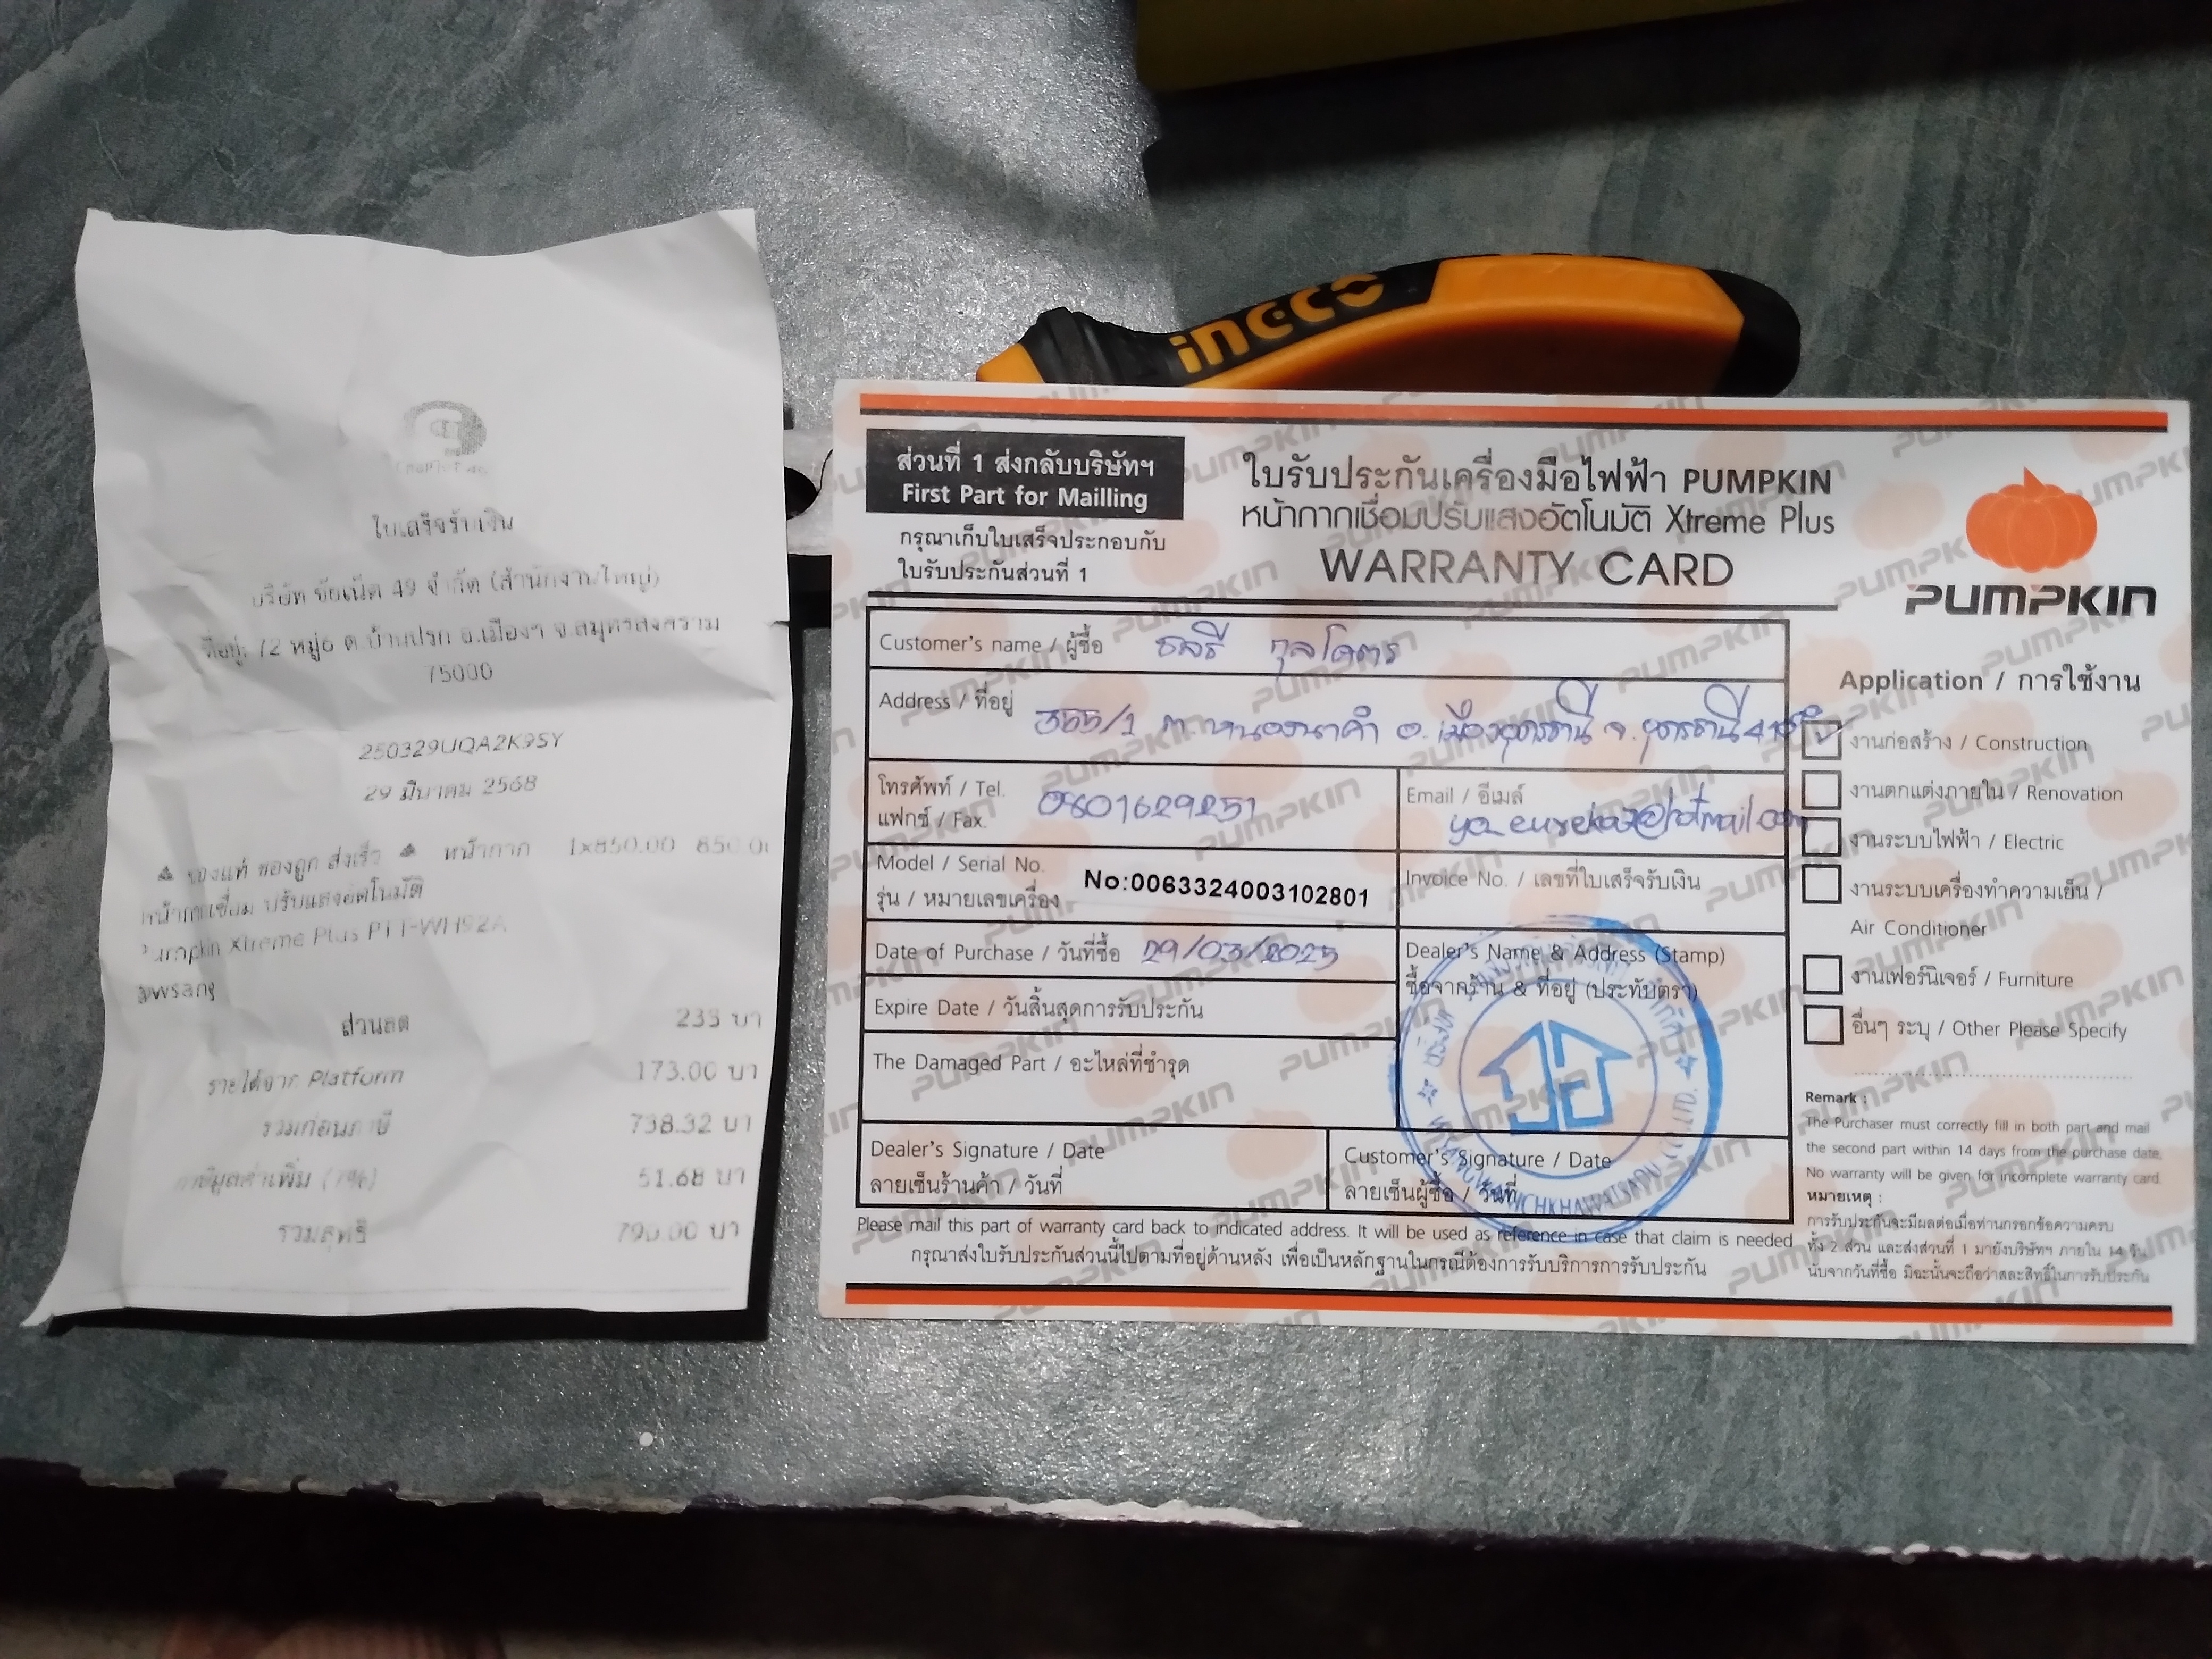 ใบเสร็จรับเงิน
บริษัท ชัยเน็ต 49 จำกัด (สำนักงานใหญ่)
ที่อยู่: 72 หมู่6 ต.บ้านปรก อ.เมืองฯ จ.สมุทรสงคราม
75000
250329UQA2K9SY
29 มีนาคม 2568
ของแท้ ของถูก ส่งเร็ว หน้ากาก 1x850.00 850.00
หน้ากากเชื่อม ปรับแสงอัตโนมัติ
Pumpkin Xtreme Plus PTT-WH92A
ส่วนลด 233 บา
รายได้จาก Platform 173.00 บา
รวมก่อนภาษี 738.32 บา
ภาษีมูลค่าเพิ่ม (7%) 51.68 บา
รวมสุทธิ 790.00 บา
ingco
ส่วนที่ 1 ส่งกลับบริษัทฯ
First Part for Mailling
กรุณาเก็บใบเสร็จประกอบกับ
ใบรับประกันส่วนที่ 1
ใบรับประกันเครื่องมือไฟฟ้า PUMPKIN
หน้ากากเชื่อมปรับแสงอัตโนมัติ Xtreme Plus
WARRANTY CARD
PUMPKIN
Customer's name / ผู้ซื้อ กุลโคตร
Address / ที่อยู่ 355/1 ต.หนองนาคำ อ.เมืองอุดรธานี จ.อุดรธานี
โทรศัพท์ / Tel. 0801629251
แฟกซ์ / Fax.
Email / อีเมล์
@hotmail.com
Model / Serial No.
รุ่น / หมายเลขเครื่อง No:0063324003102801
Invoice No. / เลขที่ใบเสร็จรับเงิน
Date of Purchase / วันที่ซื้อ 29/03/2025
Expire Date / วันสิ้นสุดการรับประกัน
The Damaged Part / อะไหล่ที่ชำรุด
Dealer's Name & Address (Stamp)
ชื้อจากร้าน & ที่อยู่ (ประทับตรา)
Dealer's Signature / Date
ลายเซ็นร้านค้า / วันที่
Customer's Signature / Date
ลายเซ็นผู้ซื้อ / วันที่
Please mail this part of warranty card back to indicated address. It will be used as reference in case that claim is needed
กรุณาส่งใบรับประกันส่วนนี้ไปตามที่อยู่ด้านหลัง เพื่อเป็นหลักฐานในกรณีต้องการรับบริการการรับประกัน
Application / การใช้งาน
งานก่อสร้าง / Construction
งานตกแต่งภายใน / Renovation
งานระบบไฟฟ้า / Electric
งานระบบเครื่องทำความเย็น /
Air Conditioner
งานเฟอร์นิเจอร์ / Furniture
อื่นๆ ระบุ / Other Please Specify
Remark :
The Purchaser must correctly fill in both part and mail
the second part within 14 days from the purchase date,
No warranty will be given for incomplete warranty card.
หมายเหตุ :
การรับประกันจะมีผลต่อเมื่อท่านกรอกข้อความครบ
ทั้ง 2 ส่วน และส่งส่วนที่ 1 มายังบริษัทฯ ภายใน 14 วัน
นับจากวันที่ซื้อ มิฉะนั้นจะถือว่าสละสิทธิ์ในการรับประกัน